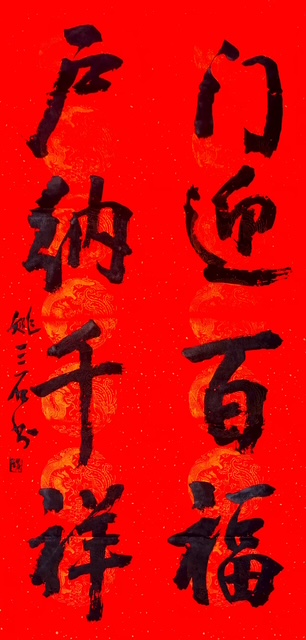 门迎百福
户纳千祥
姚三石书